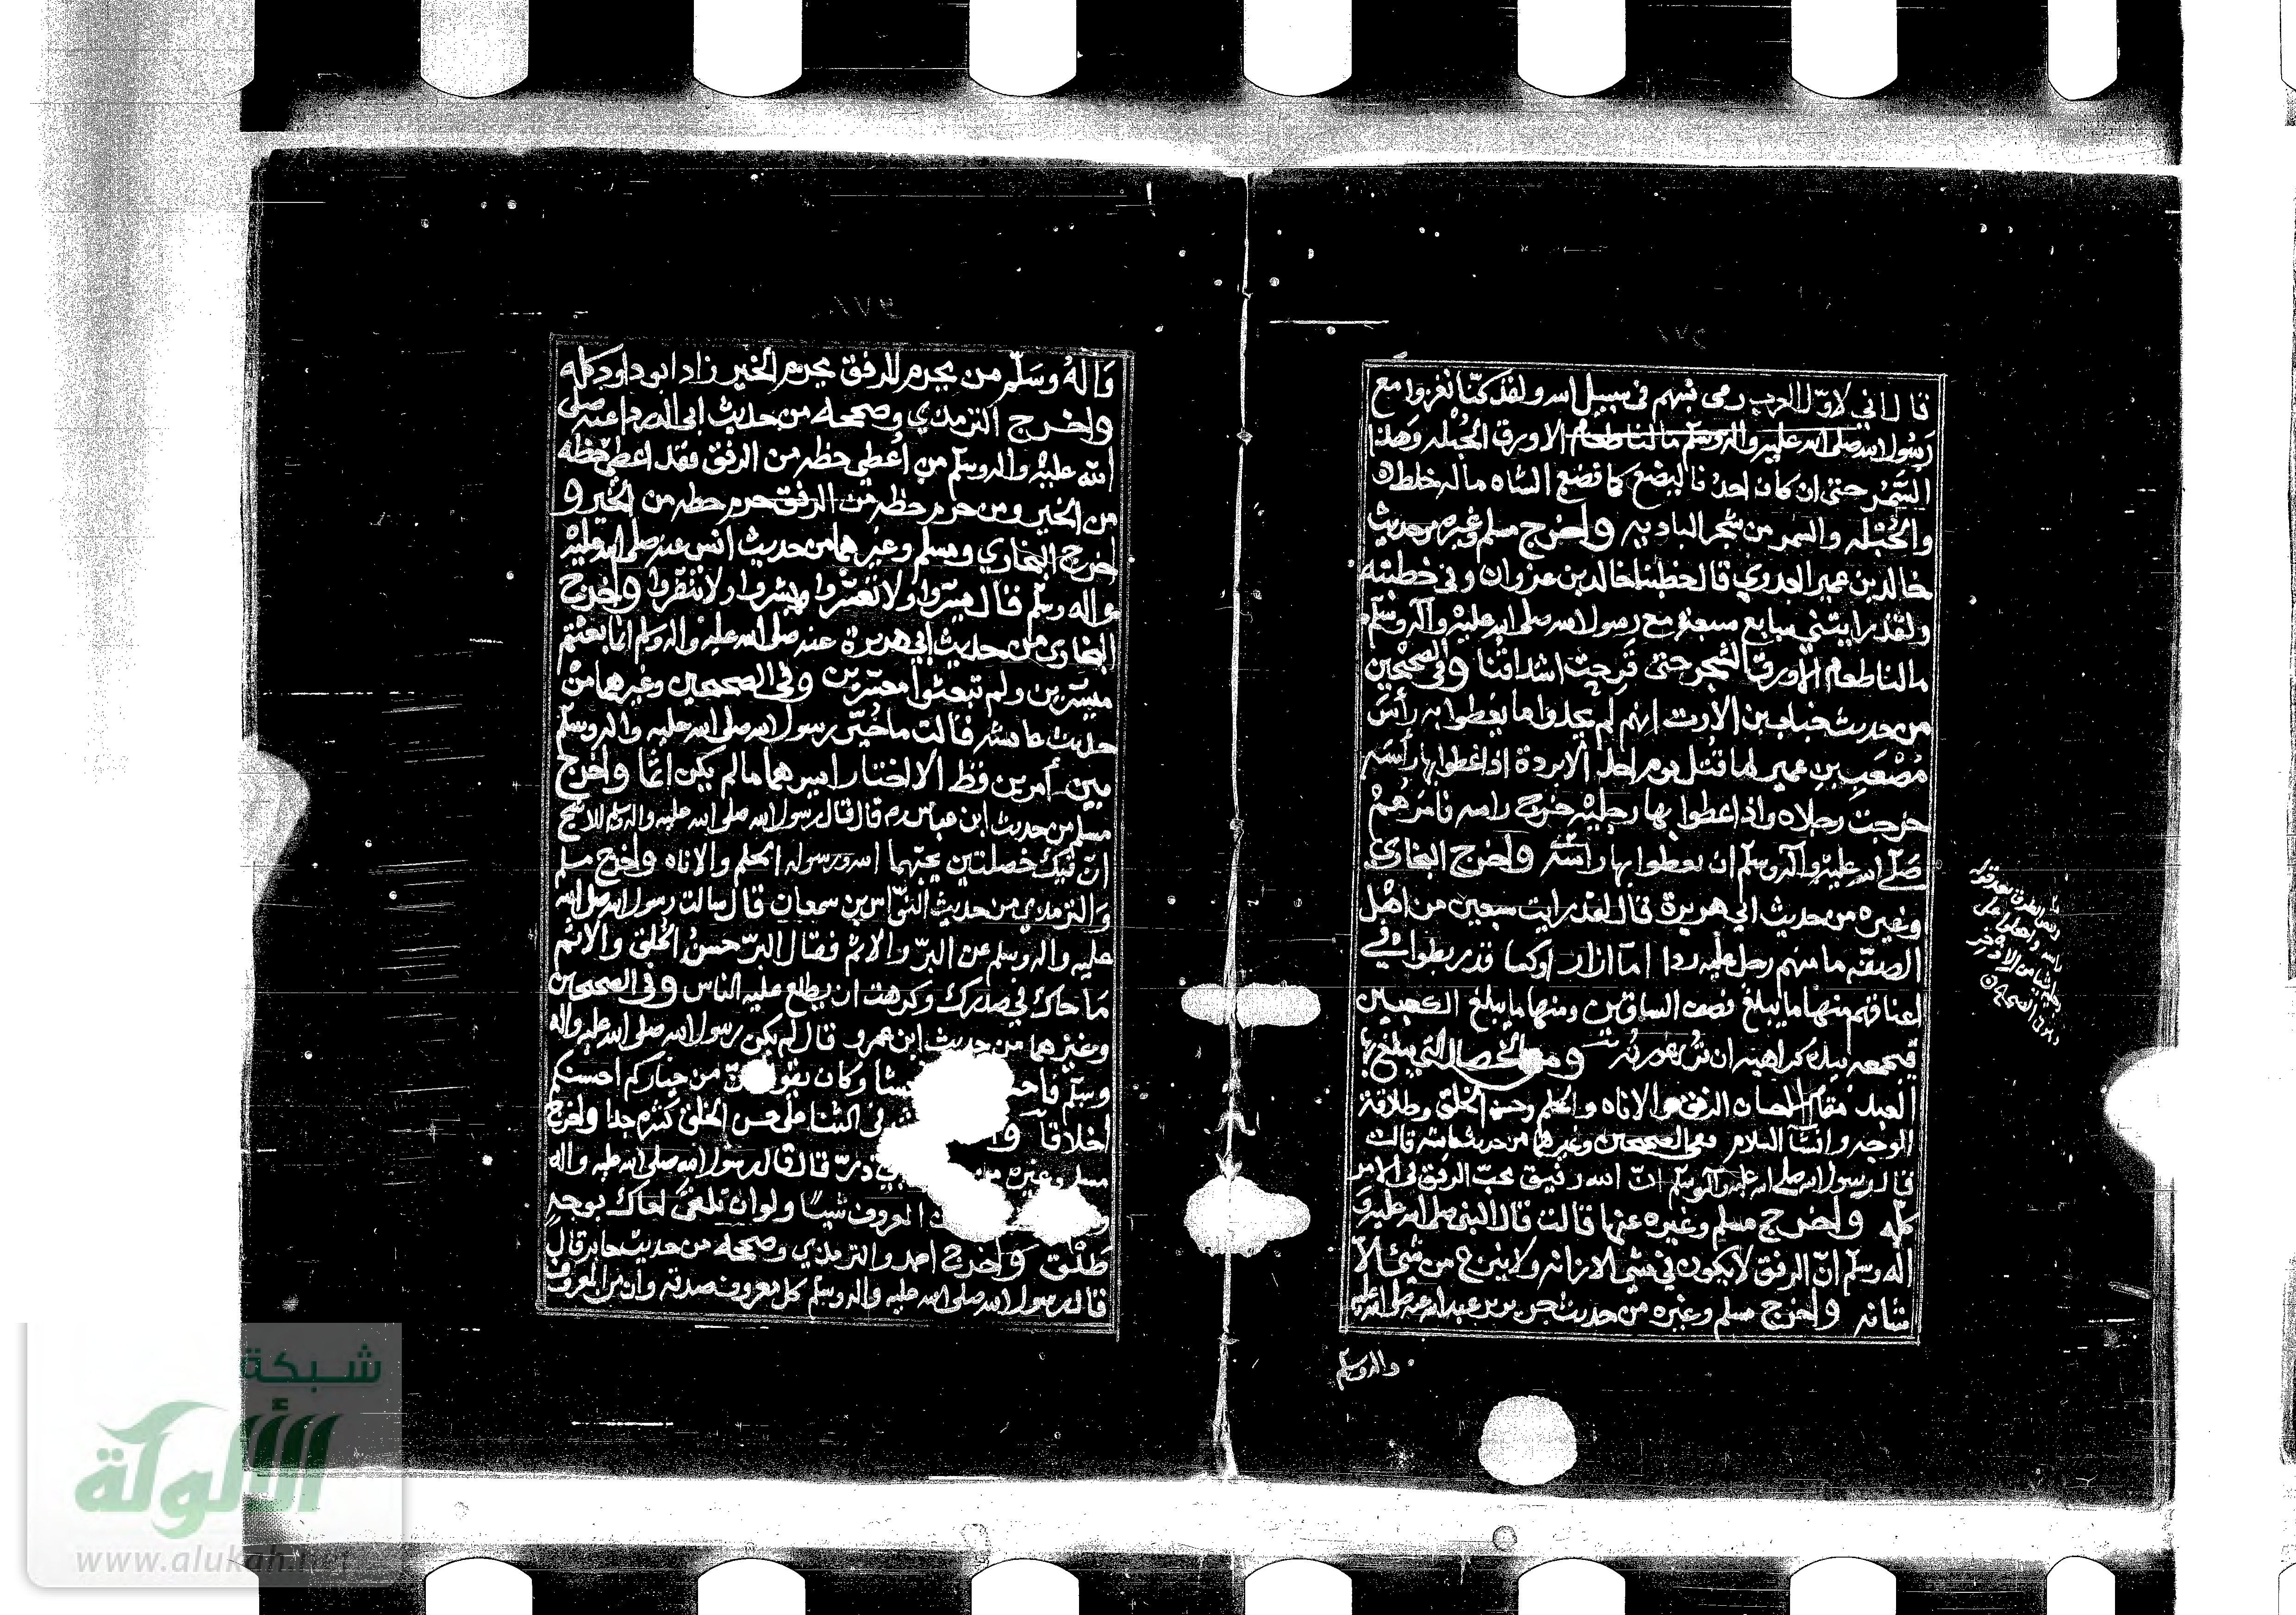 قال اني لاول العرب رمى بسهم في سبيل الله ولقد كنا نغزوا مع
رسول الله صلى الله عليه واله وسلم مالنا طعام الا ورق الحبله وهذا
السمر حتى ان كان احدنا ليضع كما تضع الشاه ماله خلط
والحبله والسمر من شجر الباديه واخرج مسلم وغيره من حديث
خالد بن عمير العدوي قال خطبنا خالد بن غزوان وفي خطبته
ولقد رايتني سابع سبعة مع رسول الله صلى الله عليه وآله وسلم
مالنا طعام الا ورق الشجر حتى قرحت اشداقنا وفي الصحيحين
من حديث خباب بن الارت انهم لم يجدوا ما يغطوا به رأس
مصعب بن عمير لما قتل يوم احد الا بردة اذا غطوا بها رأسه
خرجت رجلاه واذا غطوا بها رجليه خرج راسه فامرهم
صلى الله عليه وآله وسلم ان يغطوا بها رأسه واخرج البخاري
وغيره من حديث ابي هريرة قال لقد رايت سبعين من اهل
الصفه ما منهم رجل عليه ردا اما ازار اوكسا قد ربطوا في
اعناقهم منها ما يبلغ نصف الساقين ومنها ما يبلغ الكعبين
فيجمعه بيده كراهية ان ترى عورته ومن الخصال التي يبلغ بها
العبد مقام الرفق والاناه والحلم وحسن الخلق وطلاقة
الوجه وافشا السلام ففي الصحيحين وغيرهما من حديث عايشه قالت
قال رسول الله صلى الله عليه وآله وسلم ان الله رفيق يحب الرفق في الامر
كله واخرج مسلم وغيره عنها قالت قال النبي صلى الله عليه و
اله وسلم ان الرفق لا يكون في شي الا زانه ولا ينزع من شئ الا
شانه واخرج مسلم وغيره من حديث جرير بن عبد الله عنه صلى الله عليه
واله وسلم
بعد قوله
راسه واجعلوا على
رجليه شيا من الاذخر
واله وسلم من يحرم الرفق يحرم الخير زاد ابو داود كله
واخرج الترمذي وصححه من حديث ابي الدرداء عنه صلى
الله عليه واله وسلم من أعطي حظه من الرفق فقد اعطي حظه
من الخير ومن حرم حظه من الرفق حرم حظه من الخير و
اخرج البخاري ومسلم وغيرهما من حديث انس عنه صلى الله عليه
واله وسلم قال يسروا ولا تعسروا وبشروا ولا تنفروا واخرج
البخاري من حديث ابي هريرة عنه صلى الله عليه واله وسلم انما بعثتم
ميسرين ولم تبعثوا معسرين وفي الصحيحين وغيرهما من
حديث عايشه قالت ما خير رسول الله صلى الله عليه واله وسلم
بين أمرين قط الا اختار ايسرهما مالم يكن اثما واخرج
مسلم من حديث ابن عباس رم قال قال رسول الله صلى الله عليه واله وسلم للاشج
ان فيك خصلتين يحبهما الله ورسوله الحلم والاناه واخرج مسلم
والترمذي من حديث النواس بن سمعان قال سالت رسول الله صلى الله
عليه واله وسلم عن البر والاثم فقال البر حسن الخلق والاثم
ما حاك في صدرك وكرهت ان يطلع عليه الناس وفي الصحيحين
وغيرهما من حديث ابن عمرو قال لم يكن رسول الله صلى الله عليه واله
وسلم فاحشا وكان يقول من خياركم احسنكم
اخلاقا في الثنا على حسن الخلق كثيره جدا واخرج
مسلم وغيره ذر قال قال رسول الله صلى الله عليه واله
المعروف شيئا ولو ان تلقى اخاك بوجه
طلق واخرج احمد والترمذي وصححه من حديث جابر قال
قال رسول الله صلى الله عليه واله وسلم كل معروف صدقه وان من المعروف
شبكة
الألوكة
www.alukah.net